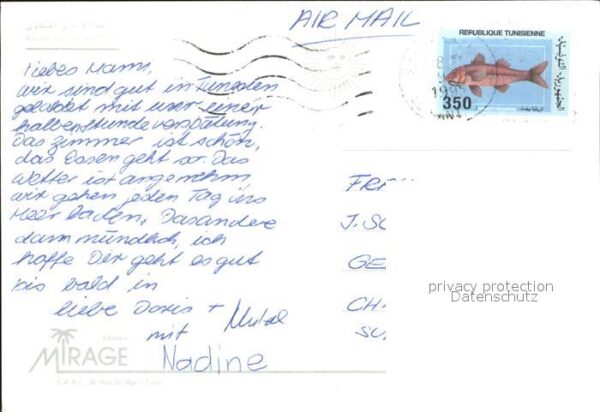 AIR MAIL
REPUBLIQUE TUNISIENNE
350
Liebes Mami,
wir sind gut in Tunesien
gelandet mit nur einer
halbenstunde verspätung.
Das Zimmer ist schön,
das Essen geht so. Das
Wetter ist angenehm
wir gehen jeden Tag ins
Meer baden. Dasandere
dann mündlich, ich
hoffe Dir geht es gut
bis bald in
liebe Doris +
mit
Nadine
FR
J. SC
GE
CH
SU
privacy protection
Datenschutz
Editions
MIRAGE